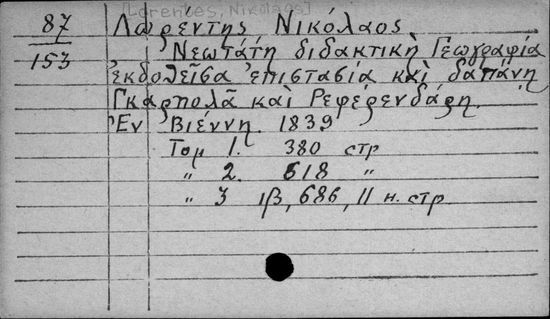 [Lorentes, Nikolaos]
87 Λωρέντης, Νικόλαος
153 Νεωτάτη διδακτικὴ Γεωγραφία
ἐκδοθεῖσα ἐπιστασίᾳ καὶ δαπάνῃ
Γκαρπολᾶ καὶ Ρεφερενδάρη.
Ἐν Βιέννῃ. 1839
Τομ 1. 380 στρ
„ 2. 518 „
„ 3 ιβ, 686, 11 н. стр